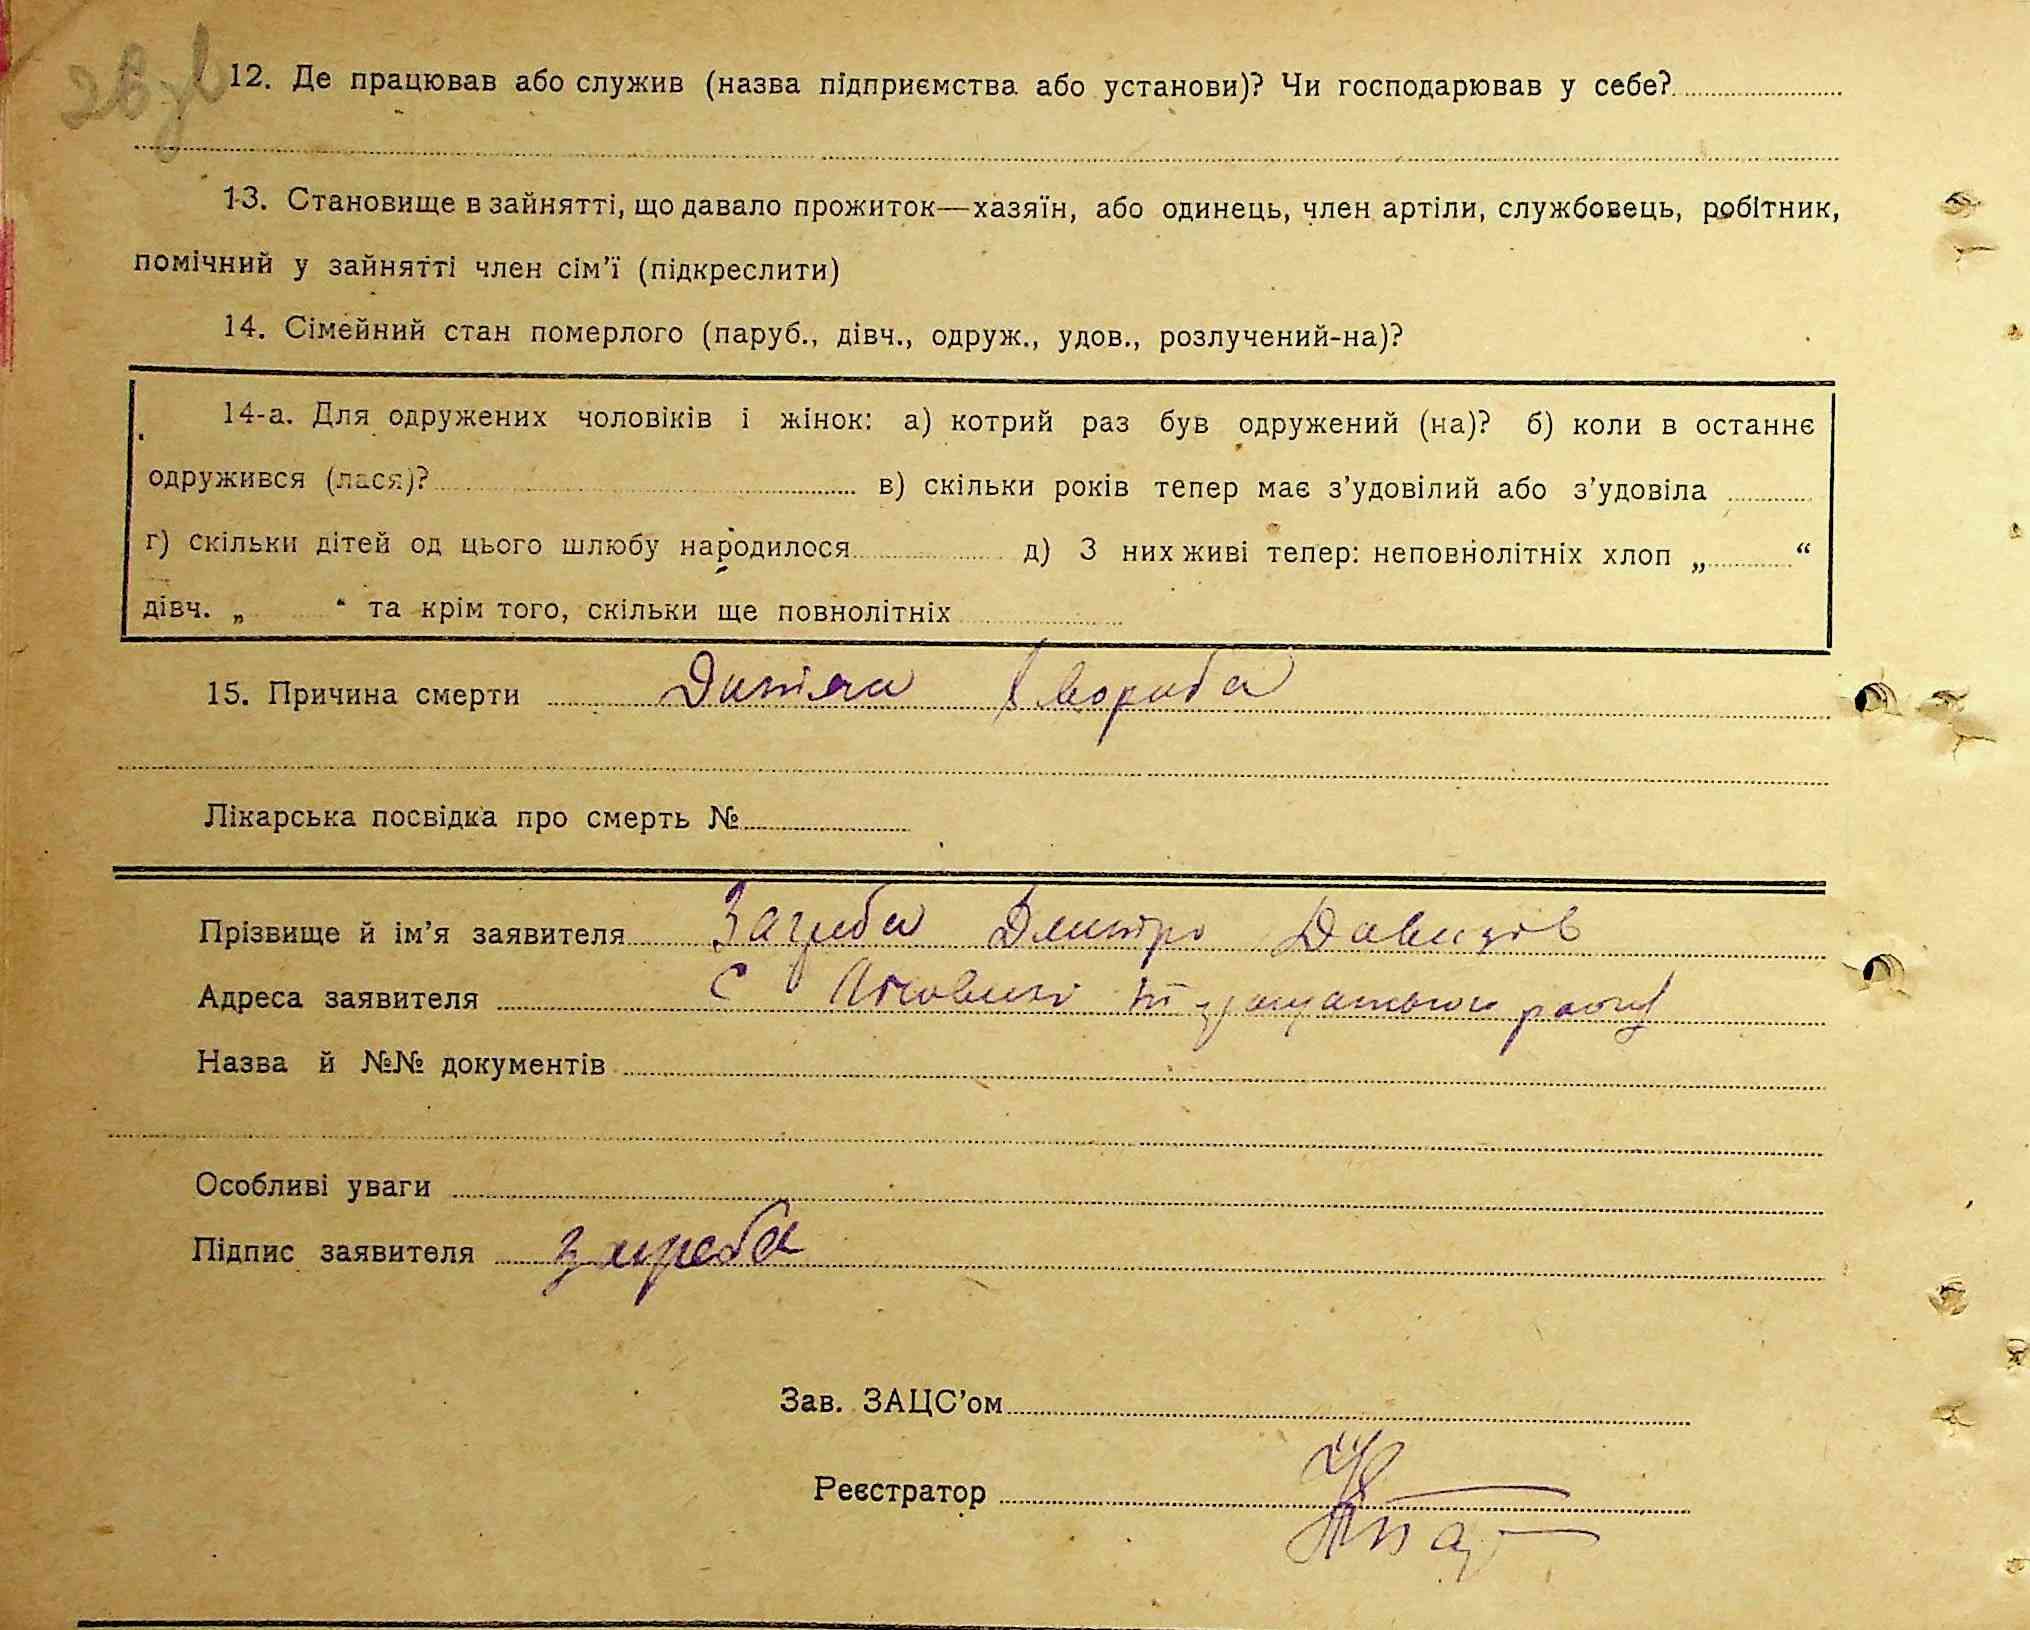 12. Де працював або служив (назва підприємства або установи)? Чи господарював у себе?
13. Становище в зайнятті, що давало прожиток—хазяїн, або одинець, член артіли, службовець, робітник,
помічний у зайнятті член сім'ї (підкреслити)
14. Сімейний стан померлого (паруб., дівч., одруж., удов., розлучений-на)?
14-а. Для одружених чоловіків і жінок: а) котрий раз був одружений (на)? б) коли в останнє
одружився (лася)? в) скільки років тепер має з'удовілий або з'удовіла
г) скільки дітей од цього шлюбу народилося д) З них живі тепер: неповнолітніх хлоп „ “
дівч. „ “ та крім того, скільки ще повнолітніх
15. Причина смерти Дитяча хвороба
Лікарська посвідка про смерть №
Прізвище й ім'я заявителя Загреба Дмитро Давидів
Адреса заявителя С району
Назва й №№ документів
Особливі уваги
Підпис заявителя Загреба
Зав. ЗАЦС'ом
Реєстратор